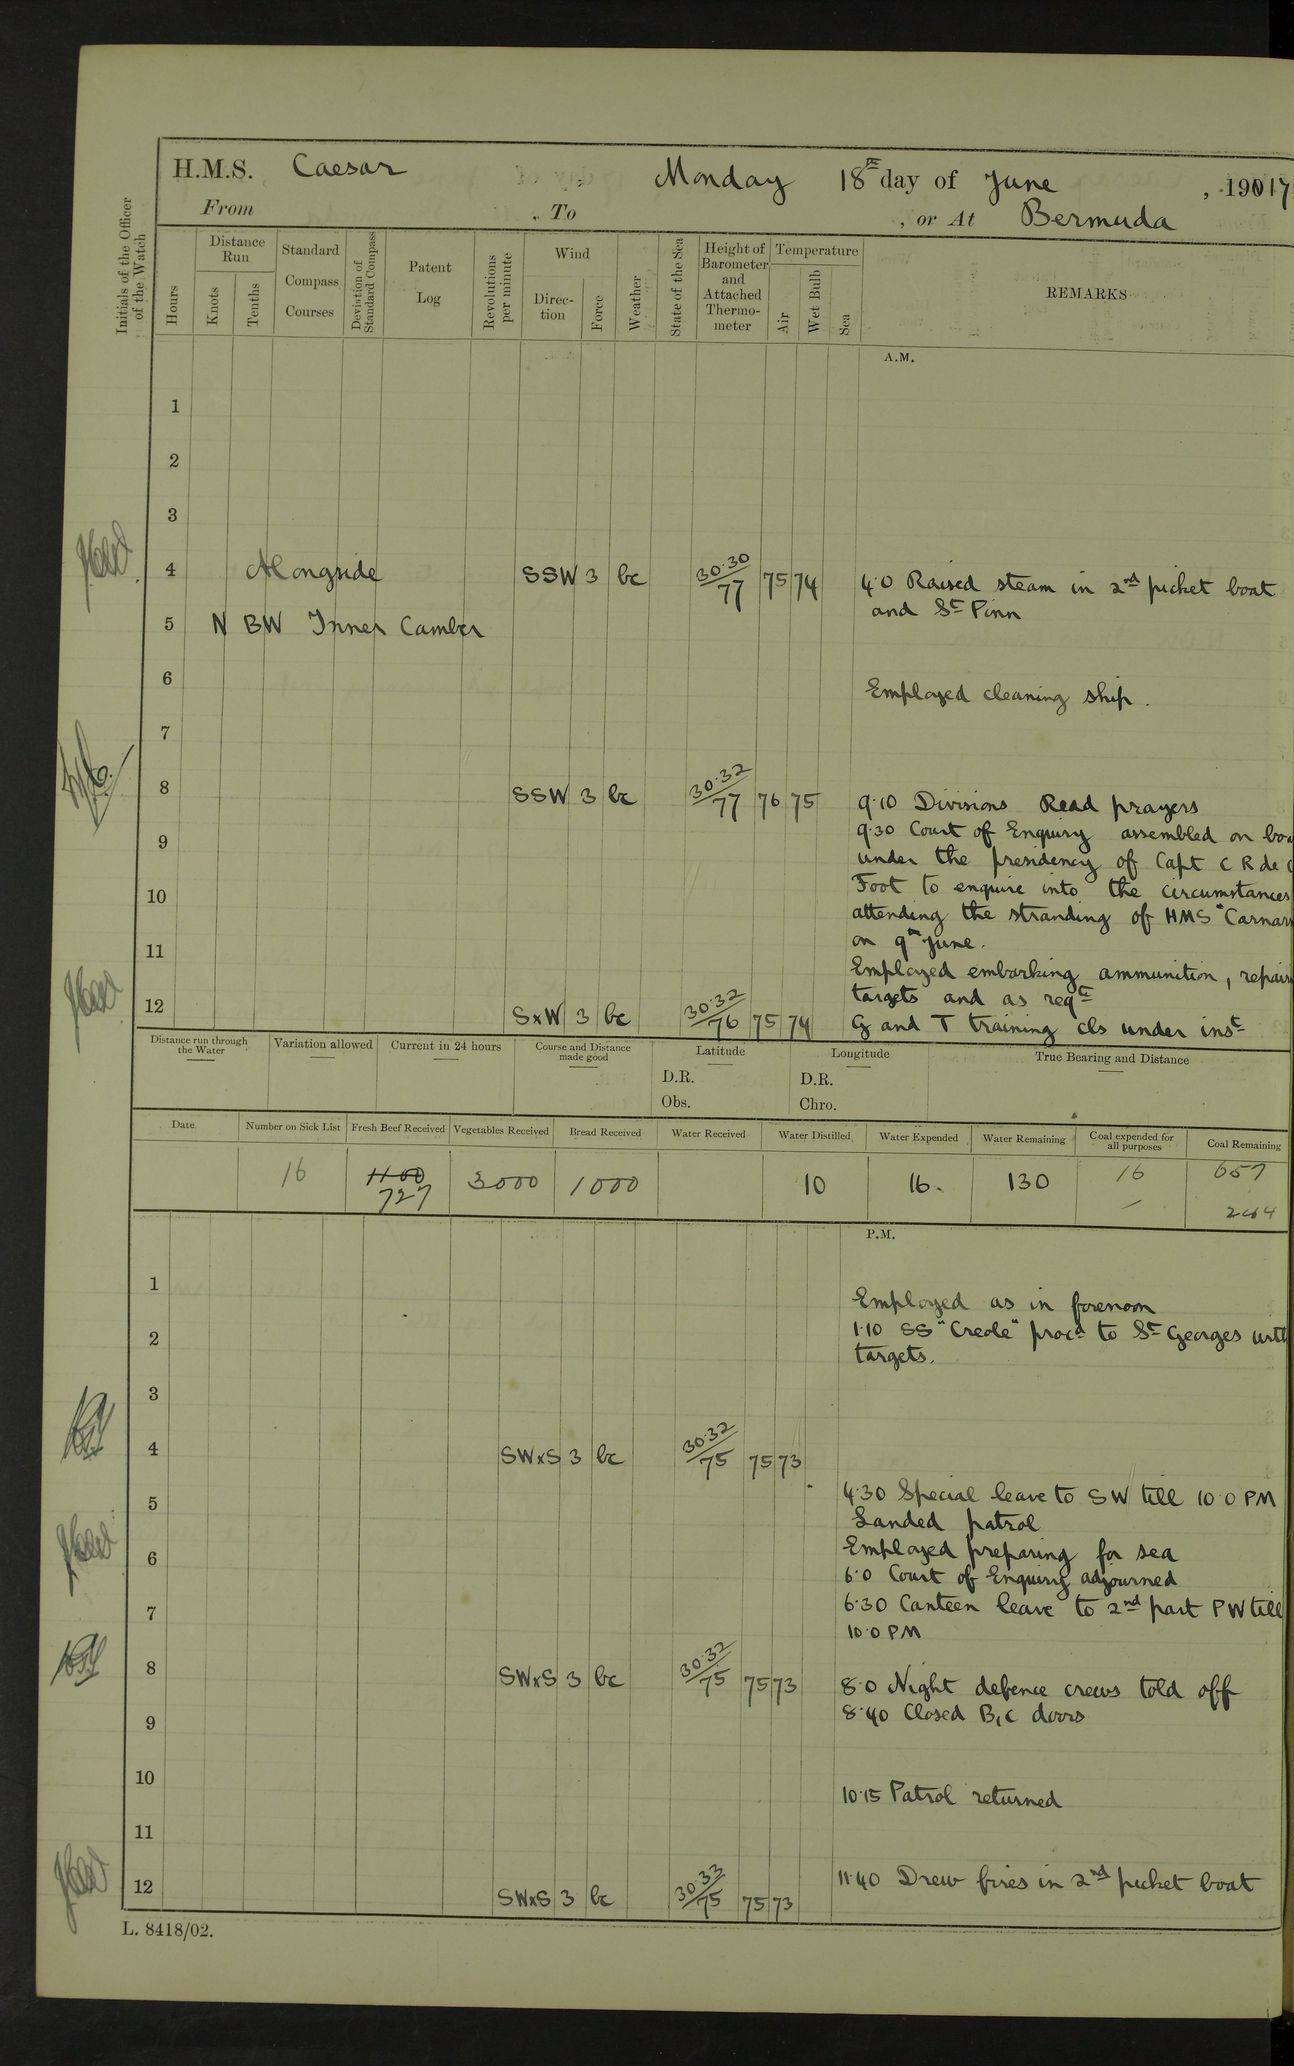 H.M.S. Caesar Monday 18th day of June, 1917
From To , or At Bermuda
Initials of the Officer of the Watch
Hours
Distance Run
Knots
Tenths
Standard Compass Courses
Deviation of Standard Compass
Patent Log
Revolutions per minute
Wind
Direc-tion
Force
Weather
State of the Sea
Height of Barometer and Attached Thermo-meter
Temperature
Air
Wet Bulb
Sea
REMARKS
A.M.
1
2
3
4 Alongside SSW 3 bc 30.30/77 75 74 4.0 Raised steam in 2nd picket boat
and St Pinn
5 N BW Inner Camber
6
Employed cleaning ship.
7
8 SSW 3 bc 30.32/77 76 75 9.10 Divisions Read prayers
9 9.30 Court of Enquiry assembled on
under the presidency of Capt C R de
10 Foot to enquire into the circumstances
attending the stranding of HMS "
11 on 9th June.
Employed embarking ammunition,
targets and as reqte
12 SxW 3 bc 30.32/76 75 74 G and T training cls under inst
Distance run through the Water
Variation allowed
Current in 24 hours
Course and Distance made good
Latitude
D.R.
Obs.
Longitude
D.R.
Chro.
True Bearing and Distance
Date
Number on Sick List
Fresh Beef Received
Vegetables Received
Bread Received
Water Received
Water Distilled
Water Expended
Water Remaining
Coal expended for all purposes
Coal Remaining
16 1100 3000 1000 10 16. 130 16 657
727 – 244
P.M.
1
Employed as in forenoon
2 1.10 SS "Creole" procd to St Georges
targets.
3
4 SWxS 3 bc 30.32/75 75 73
5 4.30 Special leave to SW till 10.0 PM
Landed patrol
6 Employed preparing for sea
6.0 Court of Enquiry adjourned
7 6.30 Canteen leave to 2nd part PW till
10.0 PM
8 SWxS 3 bc 30.32/75 75 73 8.0 Night defence crews told off
9 8.40 Closed B, C doors
10
10.15 Patrol returned
11
12 SWxS 3 bc 30.33/75 75 73 11.40 Drew fires in 2nd picket boat
L. 8418/02.